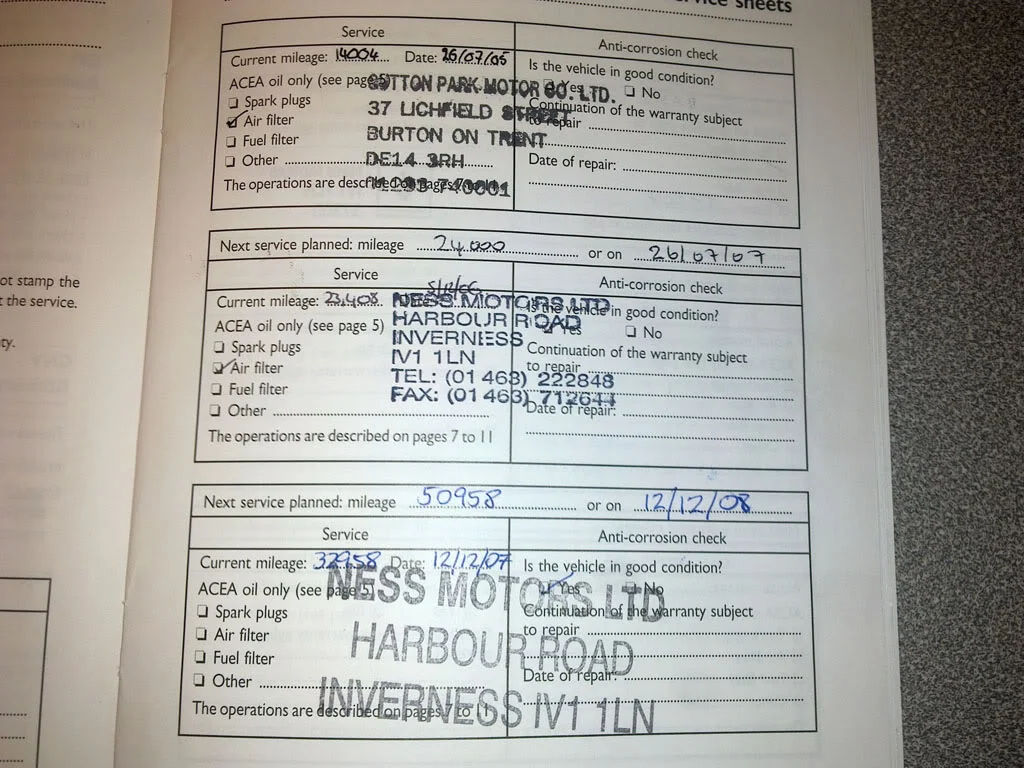 service sheets
Service
Anti-corrosion check
Current mileage: 14004 Date: 26/07/05
Is the vehicle in good condition?
ACEA oil only (see page 5)
Yes ❏ No
SUTTON PARK MOTOR CO. LTD.
❏ Spark plugs
37 LICHFIELD STREET
Continuation of the warranty subject
to repair
❏ Air filter
BURTON ON TRENT
❏ Fuel filter
DE14 3RH
Date of repair:
❏ Other
The operations are described on pages 7 to 11
Next service planned: mileage 24,000 or on 26/07/07
ot stamp the
t the service.
ty.
Service
Anti-corrosion check
Current mileage: 23,408
Is the vehicle in good condition?
NESS MOTORS LTD
HARBOUR ROAD
INVERNESS
IV1 1LN
TEL: (01 463) 222848
FAX: (01 463) 712644
ACEA oil only (see page 5)
Yes ❏ No
❏ Spark plugs
Continuation of the warranty subject
to repair
❏ Air filter
❏ Fuel filter
❏ Other
Date of repair:
The operations are described on pages 7 to 11
Next service planned: mileage 50958 or on 12/12/08
Service
Anti-corrosion check
Current mileage: 32958 Date: 12/12/07
Is the vehicle in good condition?
ACEA oil only (see page 5)
Yes ❏ No
NESS MOTORS LTD
HARBOUR ROAD
INVERNESS IV1 1LN
❏ Spark plugs
Continuation of the warranty subject
to repair
❏ Air filter
❏ Fuel filter
Date of repair:
❏ Other
The operations are described on pages 7 to 11